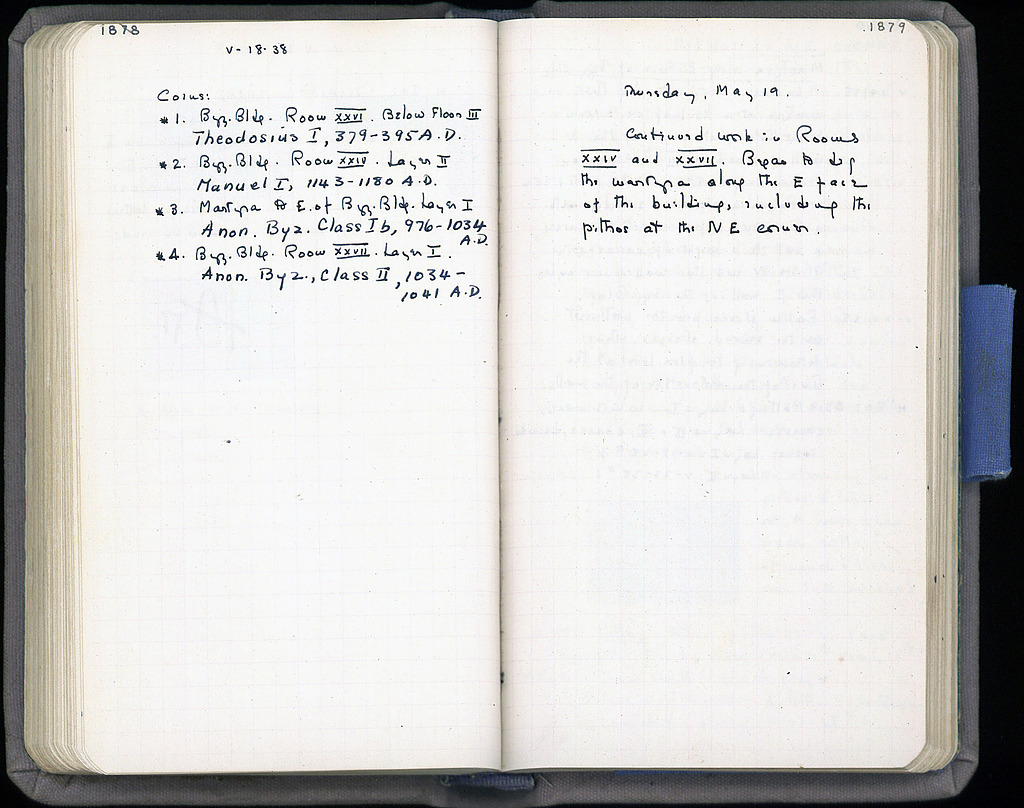 1878
V-18-38
Coins:
*1. Byz. Bldg. Room XXVI. Below Floor III
Theodosius I, 379-395 A.D.
*2. Byz. Bldg. Room XXIV. Layer II
Manuel I, 1143-1180 A.D.
*3. Martyra to E. of Byz. Bldg. Layer I
Anon. Byz. Class Ib, 976-1034
A.D.
*4. Byz. Bldg. Room XXVII. Layer I.
Anon. Byz., Class II, 1034-
1041 A.D.
1879
Thursday, May 19.
Continued work in Rooms
XXIV and XXVII. Began to dig
the martyra along the E face
of the building, including the
pithos at the NE corner.